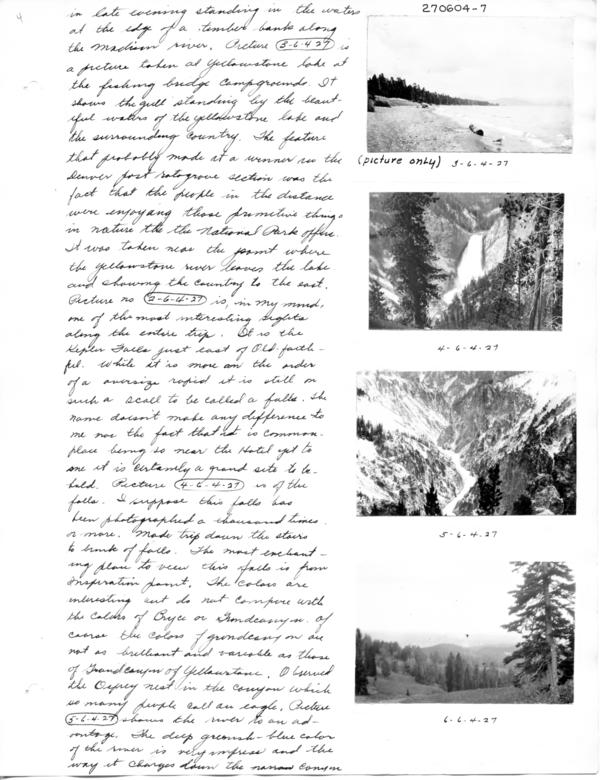 4
270604-7
in late evening standing in the waters
at the edge of a timber banks along
the Madison river. Picture 3-6-4-27 is
a picture taken at Yellowstone lake at
the fishing bridge campgrounds. It
shows the gull standing by the beaut-
iful waters of the yellowstone lake and
the surrounding country. The feature
that probably made it a winner in the
Denver post rotograve section was the
fact that the people in the distance
were enjoyang those primitive things
in nature the the National Park offers.
It was taken near the point where
the yellowstone river leaves the lake
and showing the country to the east.
Picture no 2-6-4-27 is, in my mind,
one of the most interesting sights
along the entire trip. It is the
Kepler Falls just east of Old faith-
ful. While it is more on the order
of a oversize rapid it is still on
such a scall to be called a falls. The
name doesn't make any difference to
me nor the fact that it is common-
place being so near the Hotel yet to
me it is certainly a grand site to be-
hold. Picture 4-6-4-27 is of the
falls. I suppose this falls has
been photographed a thousand times
or more. Made trip down the stairs
to brink of falls. The most enchant-
ing place to view this falls is from
Inspiration point. The colors are
interesting but do not compare with
the colors of Bryce or Grandcanyon. Of
course the colors of grandcanyon are
not as brilliant and variable as those
of Grandcanyon of Yellowstone. Observed
the Osprey nest in the canyon which
so many people call an eagle. Picture
5-6-4-27 shows the river to an ad-
vantage. The deep greenish-blue color
of the river is very impress and the
way it charges down the narrow canyon
(picture only) 3-6-4-27
4-6-4-27
5-6-4-27
6-6-4-27